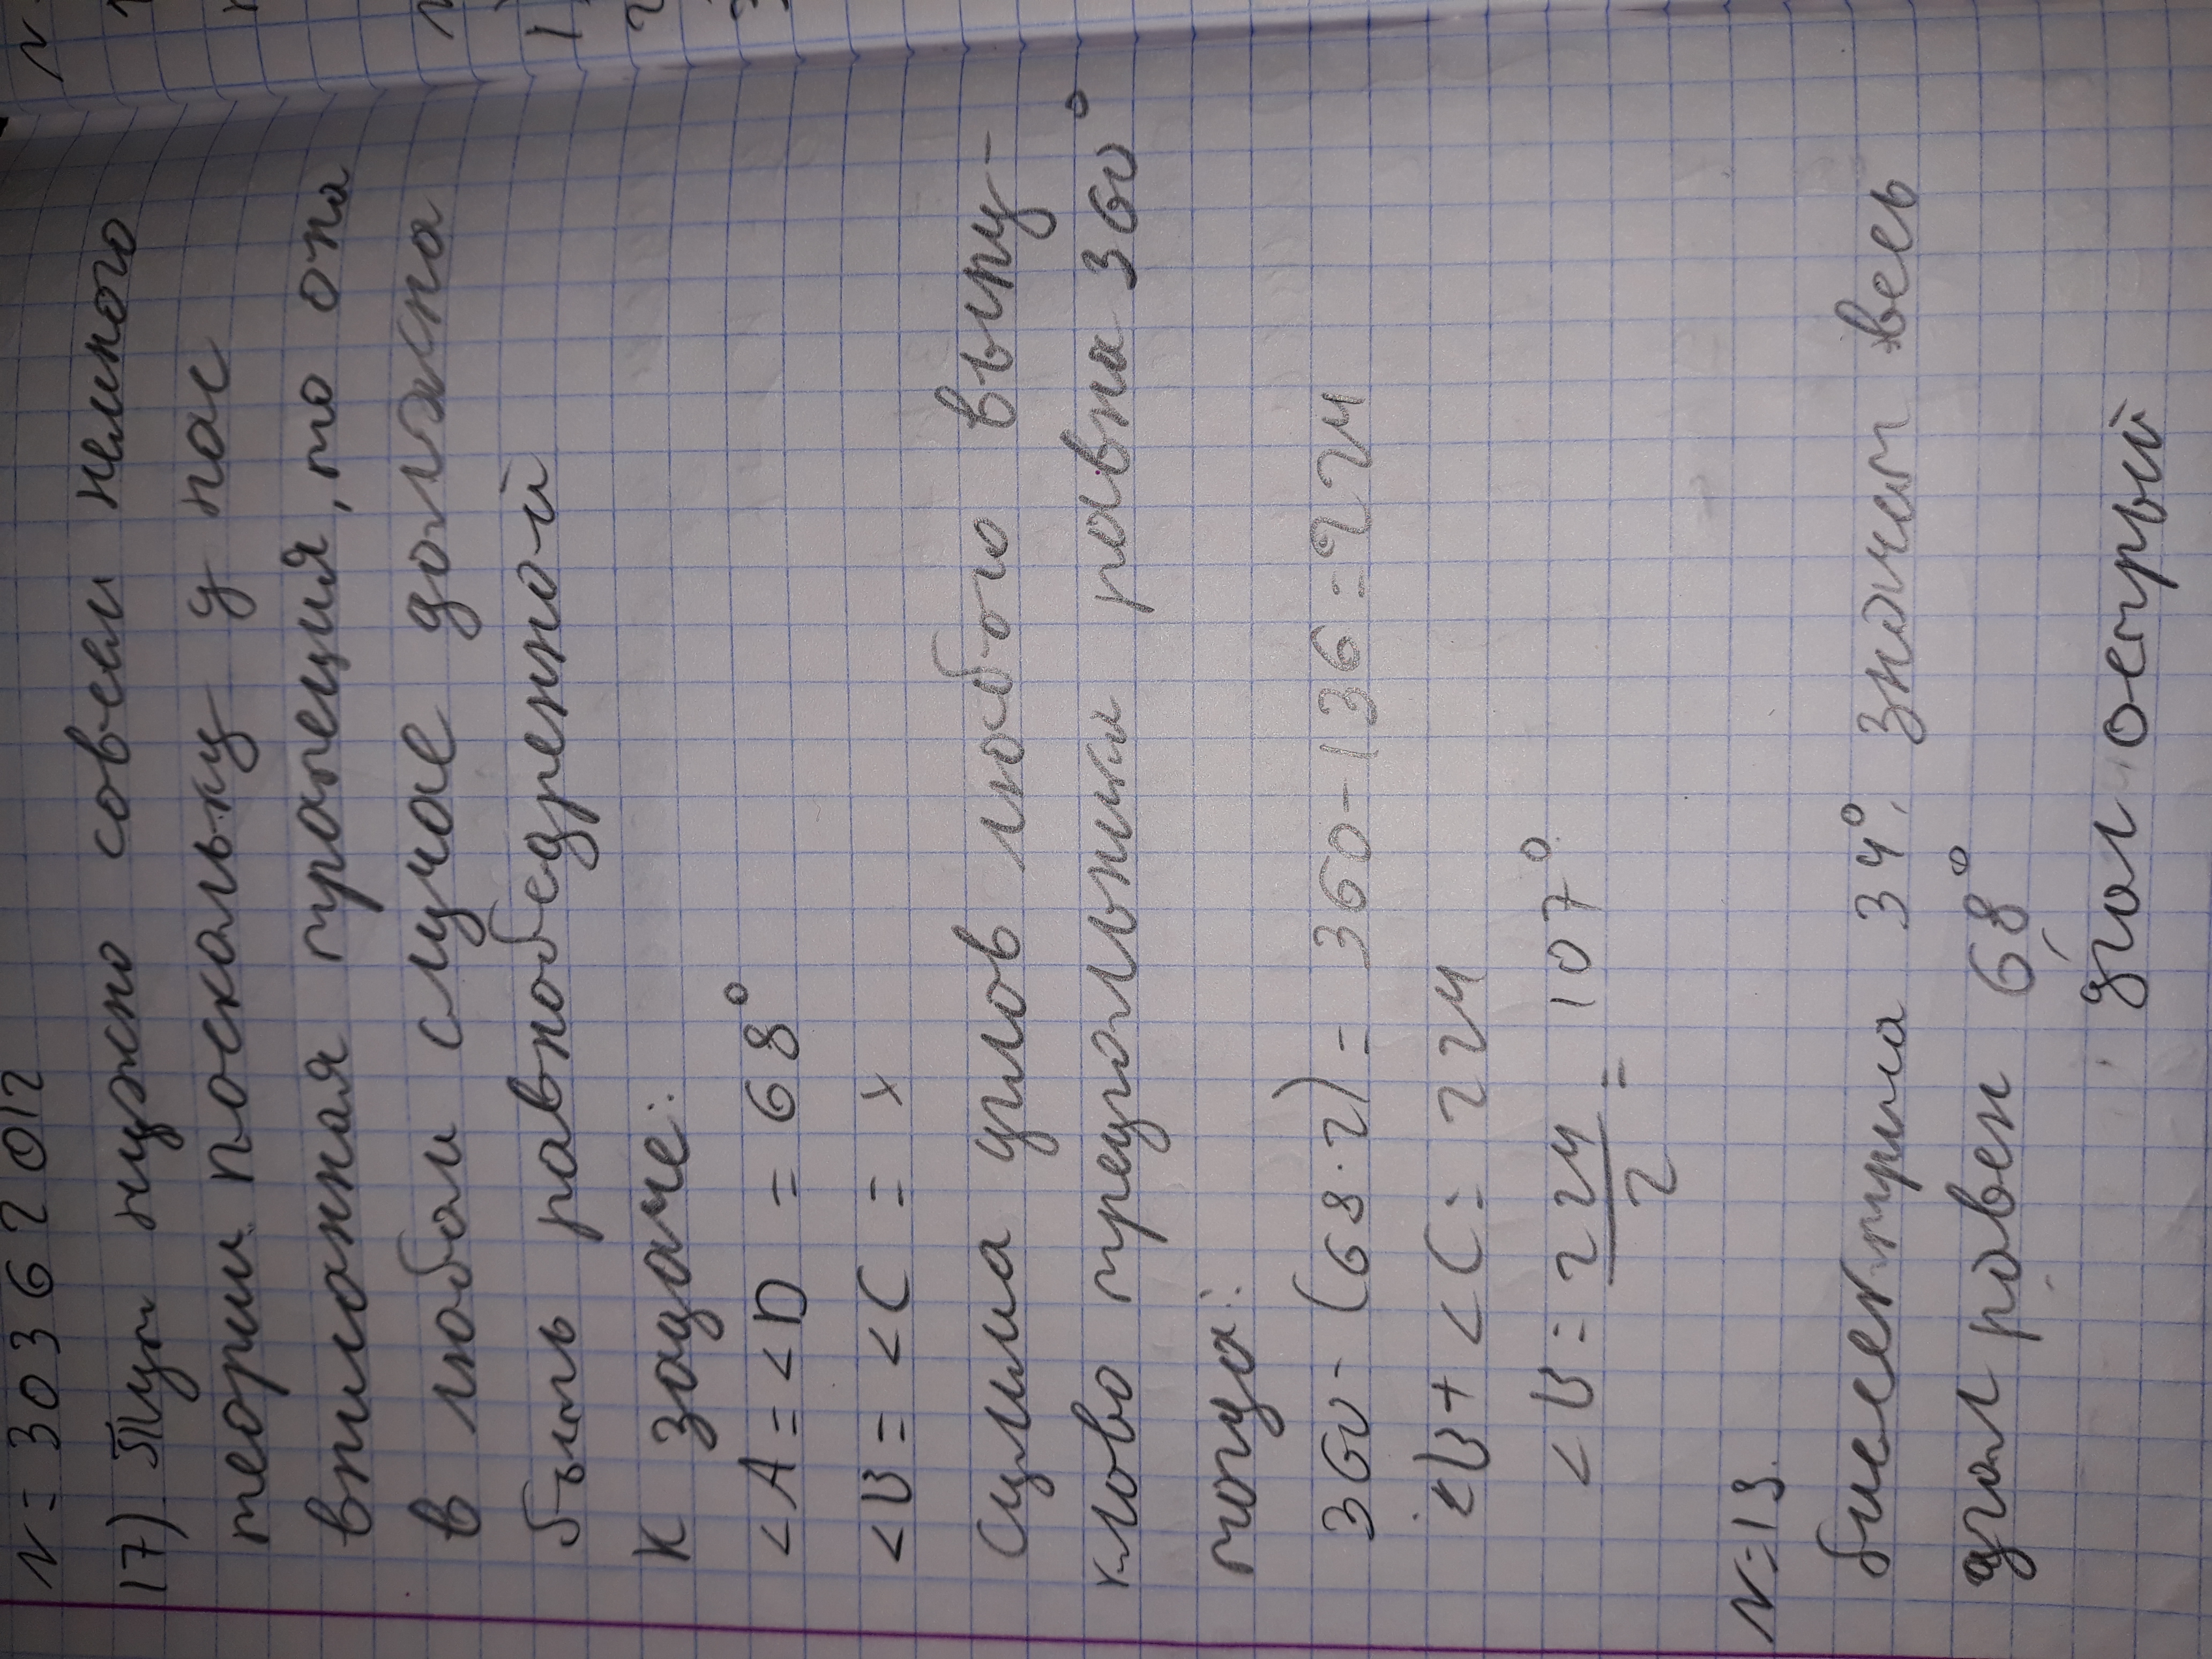 N=30362012
17) Тут нужно совсем немного
теории поскольку у нас
вписанная трапеция, то она
в любом случае должна
быть равнобедренной
К задаче:
<A = <D = 68°
<B = <C = x
Сумма углов любого выпу-
клово треугольника равна 360°
тогда:
360 - (68·2) = 360-136=224
<B + <C = 224
<B = 224/2 = 107°
N=13
биссектриса 34°, значит весь
угол равен 68°
угол острый